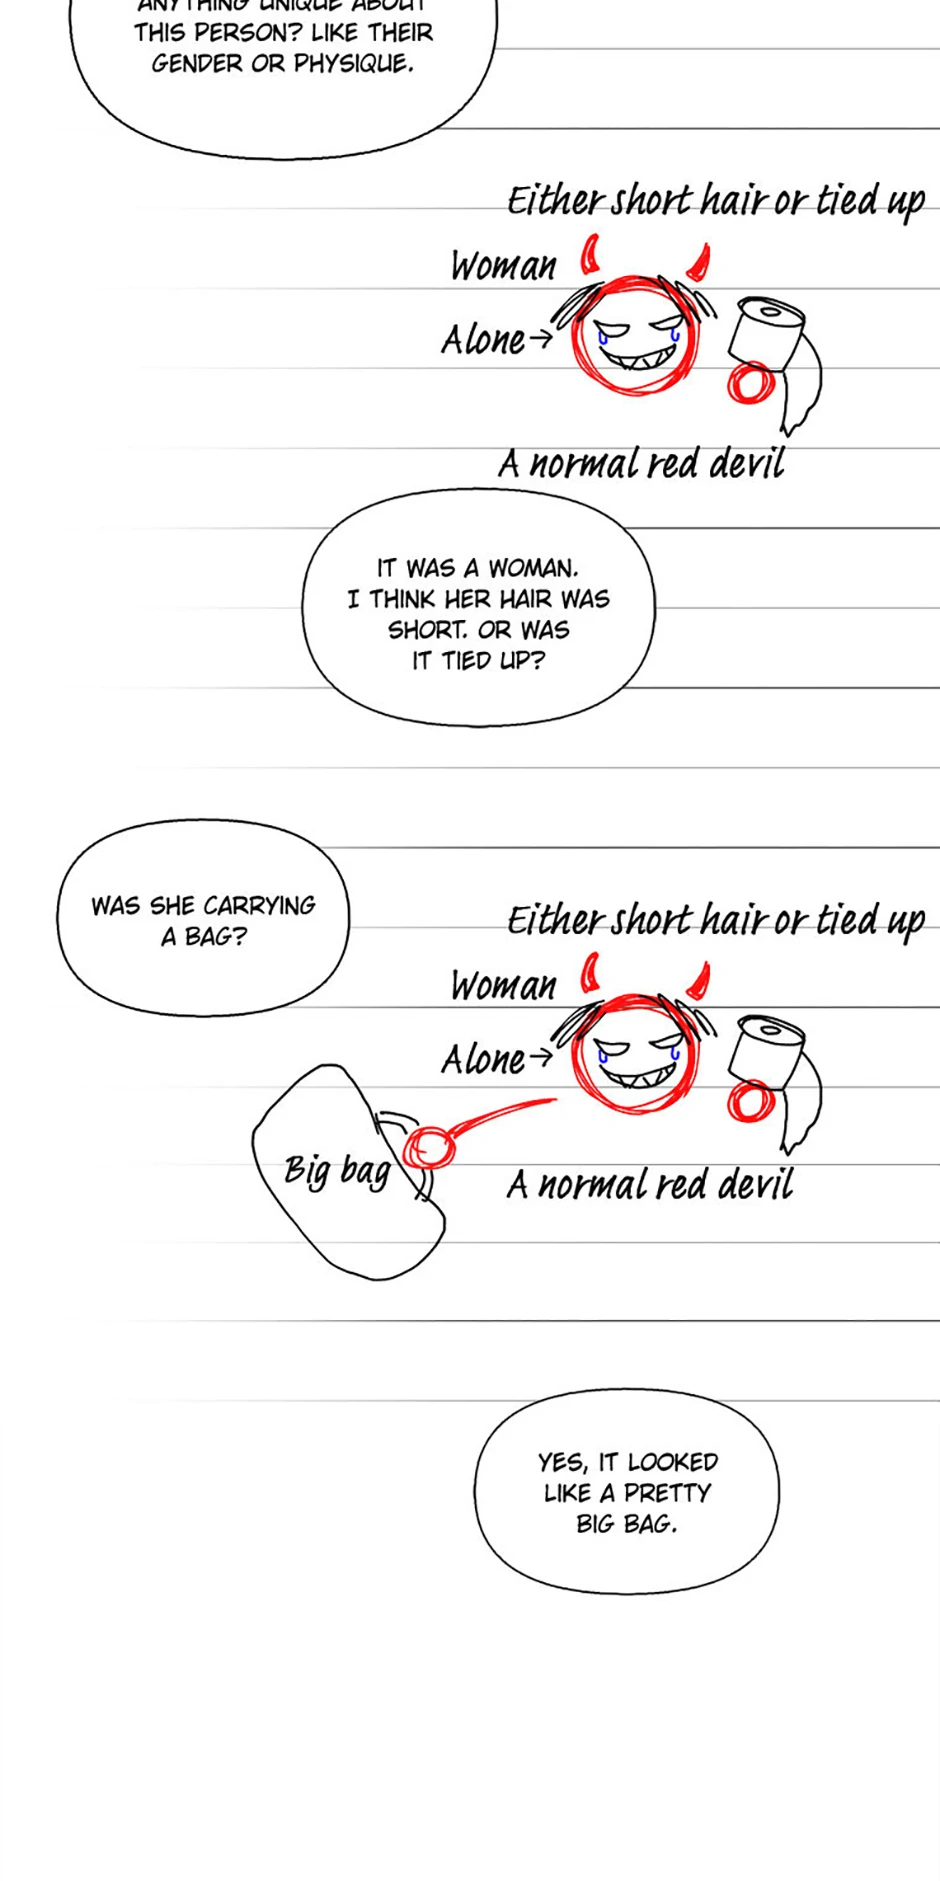 ANYTHING UNIQUE ABOUT
THIS PERSON? LIKE THEIR
GENDER OR PHYSIQUE.
Either short hair or tied up
Woman
Alone→
A normal red devil
IT WAS A WOMAN.
I THINK HER HAIR WAS
SHORT. OR WAS
IT TIED UP?
WAS SHE CARRYING
A BAG?
Either short hair or tied up
Woman
Alone→
Big bag
A normal red devil
YES, IT LOOKED
LIKE A PRETTY
BIG BAG.